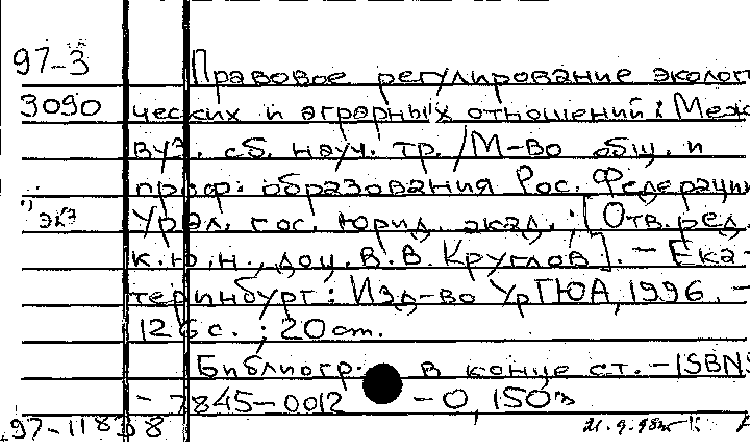 97-3 Правовое регулирование эколог
3090 ческих и аграрных отношений: Меж
вуз. сб. науч. тр. / М-во общ. и
проф. образования Рос. Федерации
экз Урал. гос. юрид. акад.; [Отв. ред.
к.ю.н., доц. В.В. Круглов]. - Ека-
теринбург: Изд-во УрГЮА, 1996. -
126 с.; 20 cm.
Библиогр. в конце ст. - ISBN5
- 7845-0012 -0, 150э
97-11838